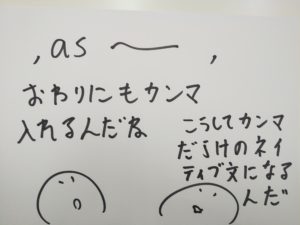 , as 〜 ,
おわりにもカンマ
入れるんだね
こうしてカンマ
だらけのネイ
ティブ文になる
んだ